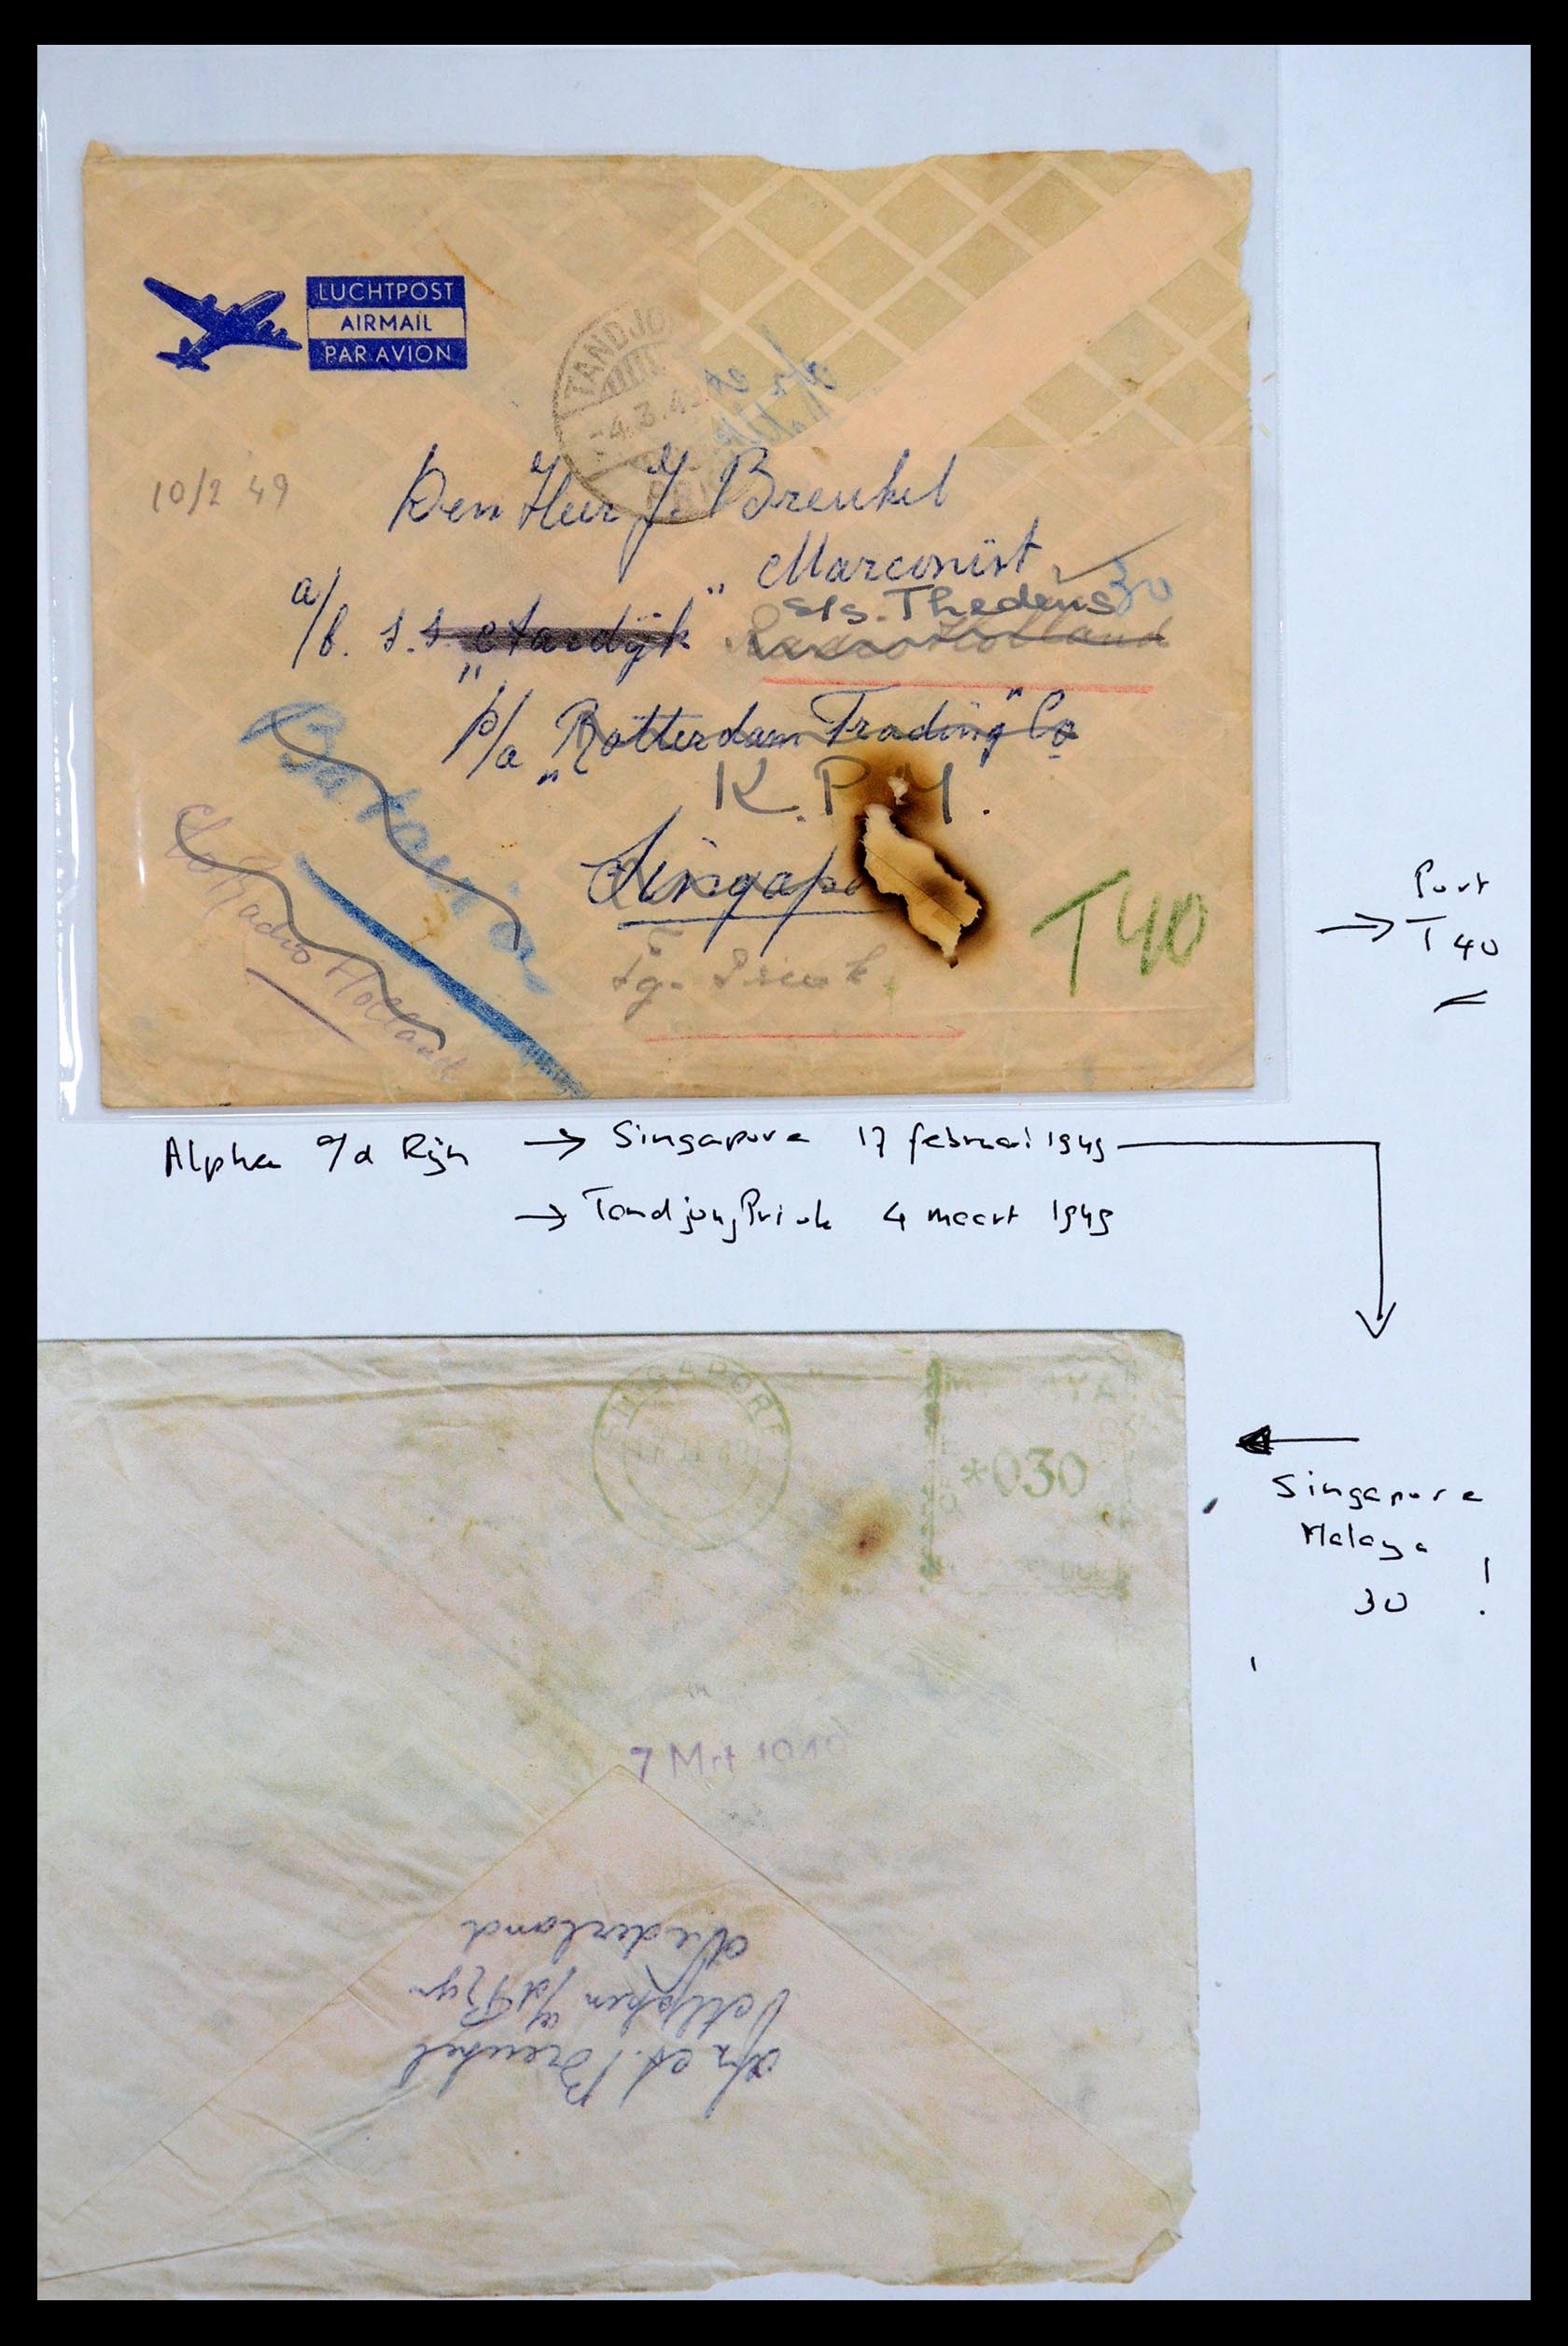 LUCHTPOST
AIRMAIL
PAR AVION
TANDJO
4.3.4
PRI
10/2 49
Den Heer J. Breukel
Marconist
30
s/s. Thedens
a/b. s.s. "Aardÿk"
Radio Holland
p/a "Rotterdam Trading" Co
K.P.M.
Batavia
Singapo
c/o Radio Holland
Tg. Priok
T 40
Port
→ T 40
Alphen a/d Rijn → Singapore 17 februari 1949
→ Tandjong Priok 4 maart 1949
SINGAPORE
*030
Singapore
Malaya
30 !
7 Mrt 1949
Afz A. Breukel
Alphen a/d Rÿn
Nederland